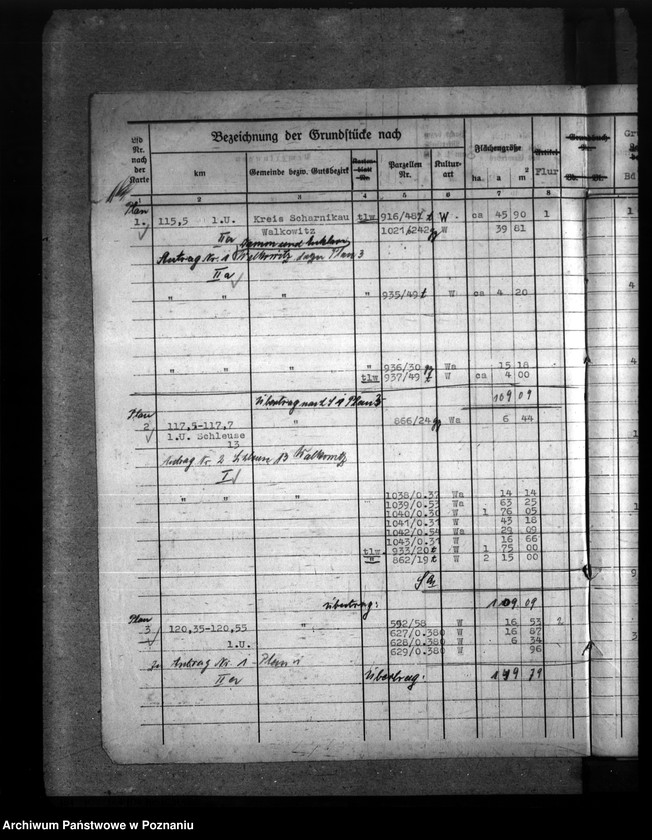 Lfd Nr. nach der Karte
Bezeichnung der Grundstücke nach
km
Gemeinde bezw. Gutsbezirk
Parzellen Nr.
Kultur-art
Flächengröße
ha. a m²
Flur
2 3 4 5 6 7 8
Plan
1. 115,5 l.U. Kreis Scharnikau tlw 916/48 t W ca 45 90 1
Walkowitz 1021/242 W 39 81
IIa
Antrag Nr. 1 Walkowitz Plan 3
IIa
" " " 935/49 t W ca 4 20
" " " 936/30 Wa 15 18
tlw 937/49 t W ca 4 00
Übertrag nach Plan 3 109 09
Plan
2 117,5-117,7 " 866/24 Wa 6 44
l.U. Schleuse
13
Antrag Nr. 2 Schleuse 13 Walkowitz
I
" " " 1038/0.37 Wa 14 14
1039/0.53 Wa 63 25
1040/0.30 W 1 76 05
1041/0.31 W 43 18
1042/0.54 Wa 29 09
1043/0.31 W 16 66
tlw. 933/20 t W 1 75 00
" 862/19 t W 2 15 00
Übertrag: 109 09
Plan
3 120,35-120,55 " 592/58 W 16 53 2
627/0.380 W 16 87
628/0.380 W 6 34
l.U. 629/0.380 96
Antrag Nr. 1 Plan
IIa Übertrag: 149 79
Archiwum Państwowe w Poznaniu